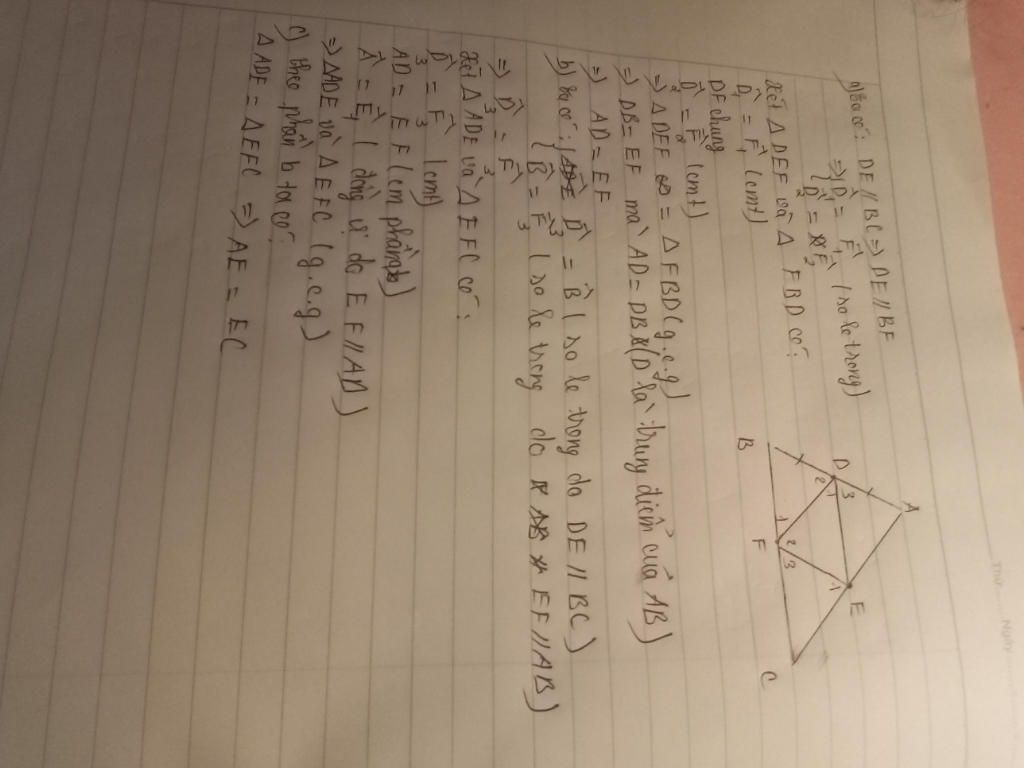 a) Ta có: DE // BC => DE // BF
=> D̂1 = F̂1 (so le trong)
D̂2 = F̂2
Xét Δ DEF và Δ FBD có:
D̂1 = F̂1 (cmt)
DF chung
D̂2 = F̂2 (cmt)
=> Δ DEF = Δ FBD (g.c.g)
=> DB = EF mà AD = DB (D là trung điểm của AB)
=> AD = EF
b) Ta có: D̂3 = B̂ (so le trong do DE // BC)
B̂ = F̂3 (so le trong do EF // AB)
=> D̂3 = F̂3
Xét Δ ADE và Δ EFC có:
D̂3 = F̂3 (cmt)
AD = EF (cm phần a)
Â = Ê1 (đồng vị do EF // AD)
=> Δ ADE và Δ EFC (g.c.g)
c) theo phần b ta có:
Δ ADE = Δ EFC => AE = EC
A
D
3
1
2
E
1
B
1
F
2
3
C
Thứ
Ngày